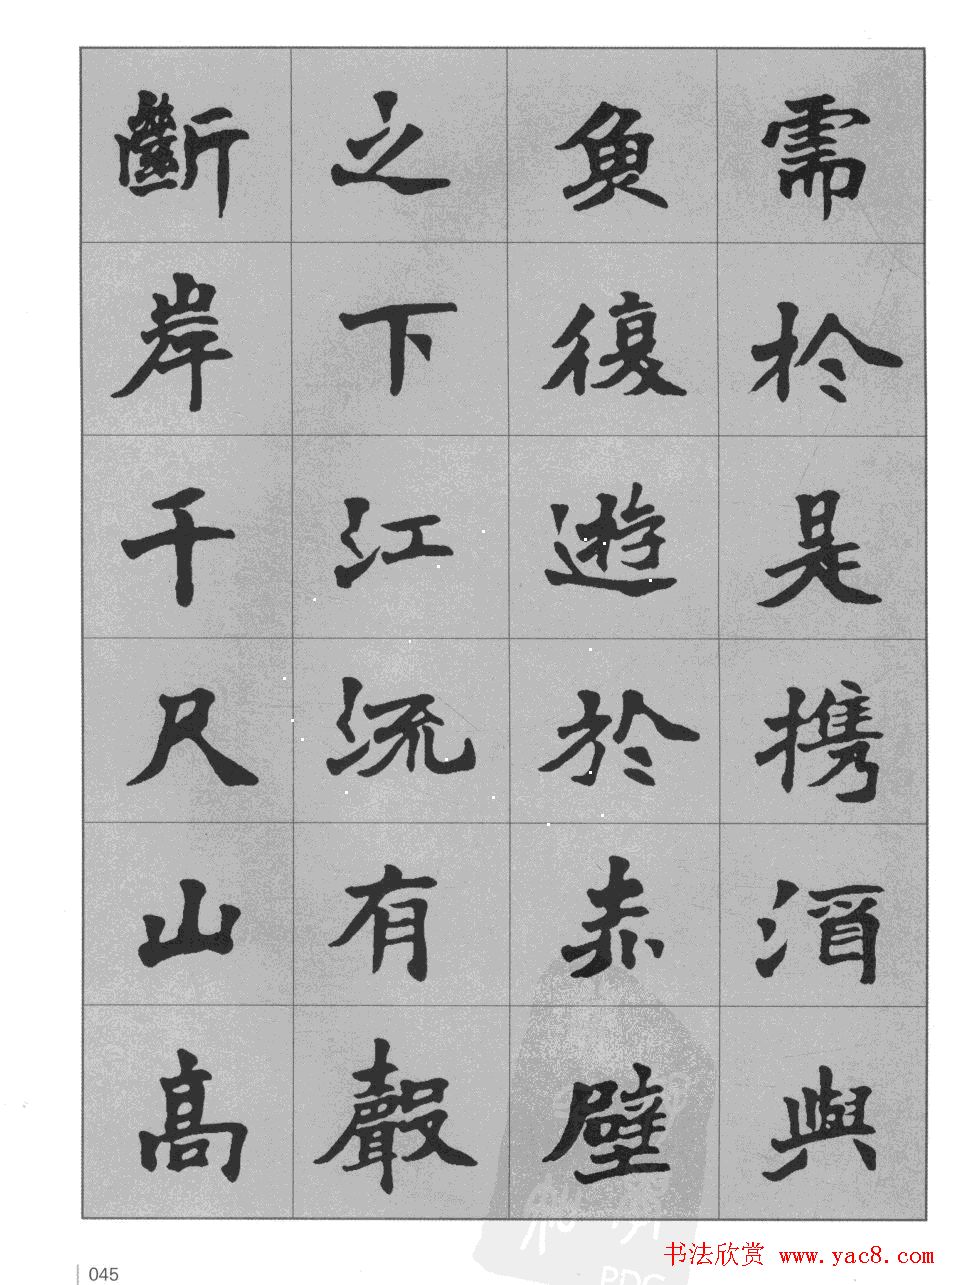 需於是携酒與
魚復遊於赤壁
之下江流有聲
斷岸千尺山高
045
书法欣赏 www.yac8.com
PDG